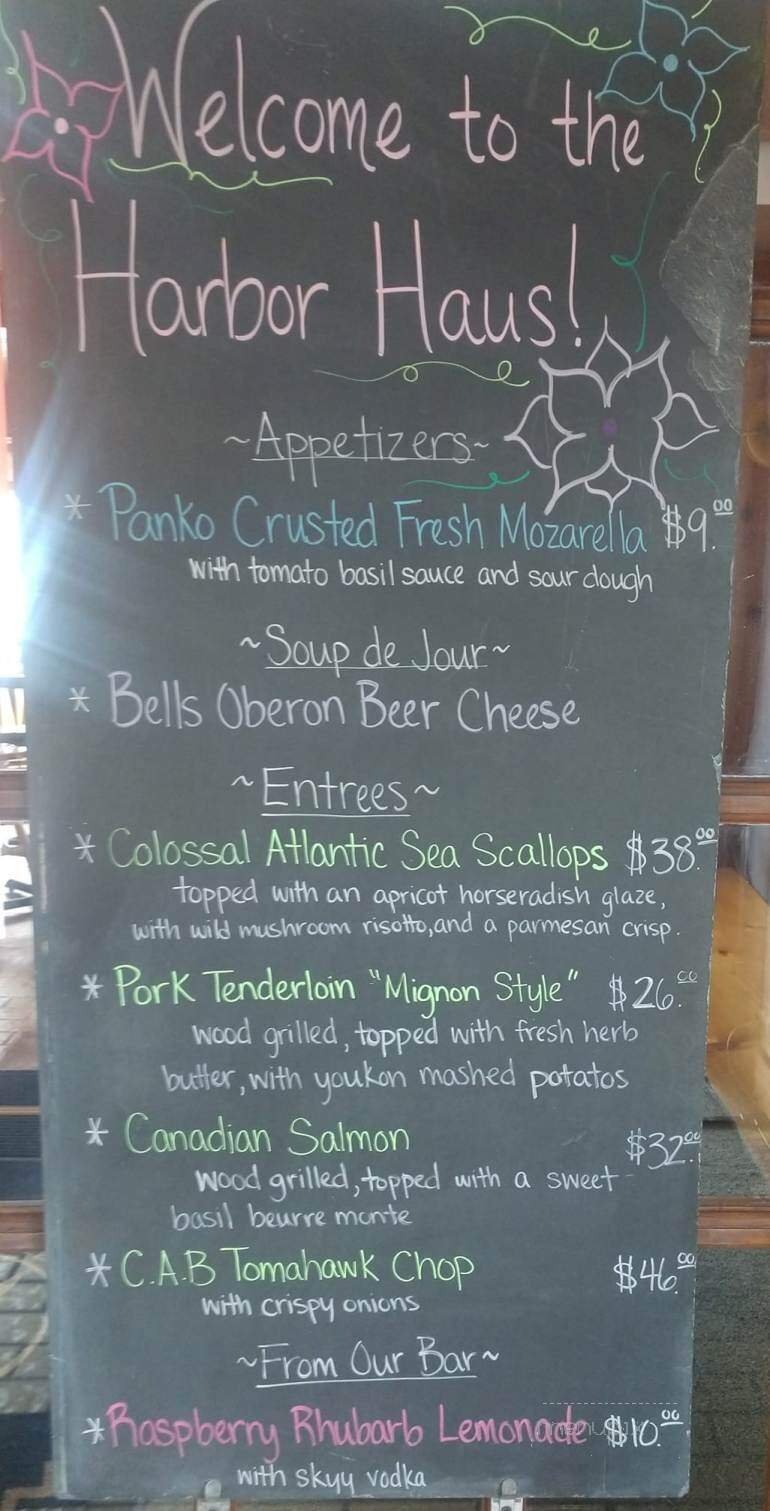 Welcome to the
Harbor Haus!
~Appetizers~
* Panko Crusted Fresh Mozarella $9.00
with tomato basil sauce and sour dough
~Soup de Jour~
* Bells Oberon Beer Cheese
~Entrees~
* Colossal Atlantic Sea Scallops $38.00
topped with an apricot horseradish glaze,
with wild mushroom risotto, and a parmesan crisp.
* Pork Tenderloin "Mignon Style" $26.00
wood grilled, topped with fresh herb
butter, with youkon mashed potatos
* Canadian Salmon $32.00
wood grilled, topped with a sweet
basil beurre monte
* C.A.B Tomahawk Chop $46.00
with crispy onions
~From Our Bar~
* Raspberry Rhubarb Lemonade $10.00
with skyy vodka